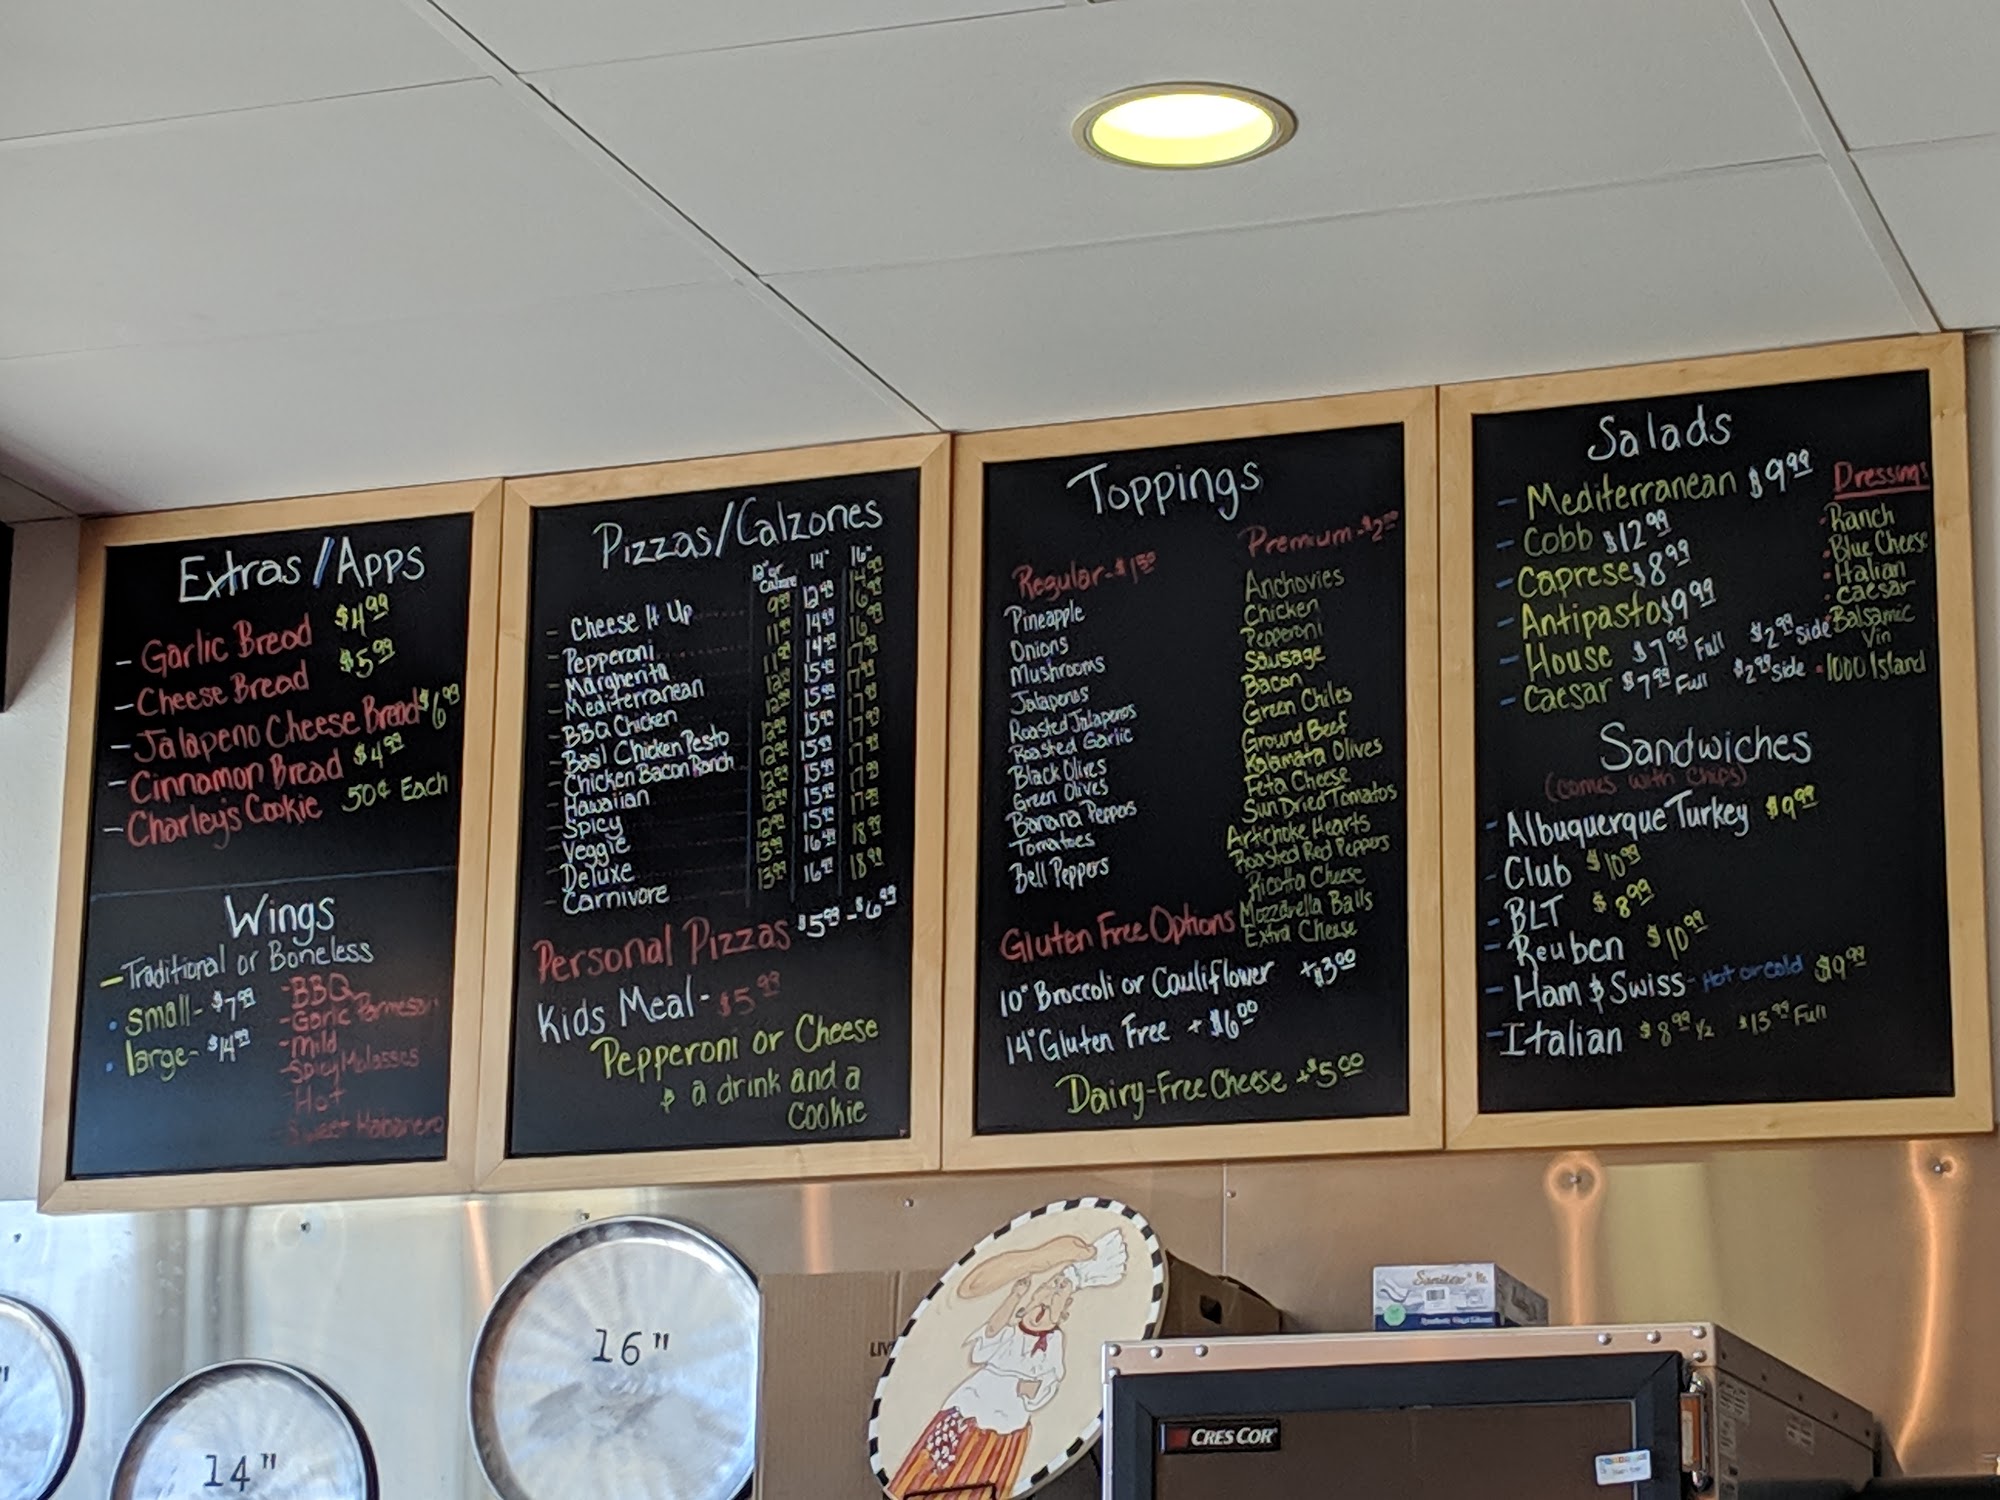 Extras/Apps
- Garlic Bread $4.99
- Cheese Bread $5.99
- Jalapeno Cheese Bread $6.99
- Cinnamon Bread $4.99
- Charley's Cookie 50¢ Each
Wings
- Traditional or Boneless
• Small - $7.99
• large - $14.99
- BBQ
- Garlic Parmesan
- Mild
- Spicy Molasses
- Hot
- Sweet Habanero
Pizzas/Calzones
12" or Calzone 14" 16"
- Cheese It Up 9.99 12.99 14.99
- Pepperoni 11.99 14.99 16.99
- Margherita 11.99 14.99 16.99
- Mediterranean 12.99 15.99 17.99
- BBQ Chicken 12.99 15.99 17.99
- Basil Chicken Pesto 12.99 15.99 17.99
- Chicken Bacon Ranch 12.99 15.99 17.99
- Hawaiian 12.99 15.99 17.99
- Spicy 12.99 15.99 17.99
- Veggie 12.99 15.99 17.99
- Deluxe 13.99 16.99 18.99
- Carnivore 13.99 16.99 18.99
Personal Pizzas $5.99 - $6.99
Kids Meal - $5.99
Pepperoni or Cheese
& a drink and a
cookie
Toppings
Regular - $1.50
Pineapple
Onions
Mushrooms
Jalapenos
Roasted Jalapenos
Roasted Garlic
Black Olives
Green Olives
Banana Peppers
Tomatoes
Bell Peppers
Premium - $2.00
Anchovies
Chicken
Pepperoni
Sausage
Bacon
Green Chiles
Ground Beef
Kalamata Olives
Feta Cheese
Sun Dried Tomatos
Artichoke Hearts
Roasted Red Peppers
Ricotta Cheese
Mozzarella Balls
Extra Cheese
Gluten Free Options
10" Broccoli or Cauliflower +$3.00
14" Gluten Free + $6.00
Dairy-Free Cheese +$5.00
Salads
- Mediterranean $9.99
- Cobb $12.99
- Caprese $8.99
- Antipasto $9.99
- House $7.99 Full $2.99 Side
- Caesar $7.99 Full $2.99 Side
Dressings
• Ranch
• Blue Cheese
• Italian
• Caesar
• Balsamic
Vin
• 1000 Island
Sandwiches
(comes with chips)
- Albuquerque Turkey $9.99
- Club $10.99
- BLT $8.99
- Reuben $10.99
- Ham & Swiss - Hot or cold $9.99
- Italian $8.99 1/2 $13.99 Full
16"
14"
LIV
CRES COR